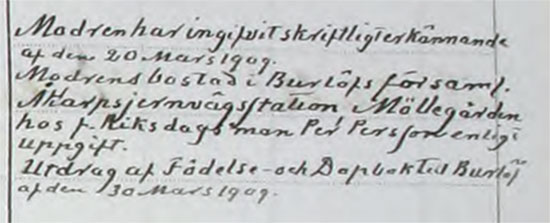 Modren har ingifvit skriftligt erkännande
af den 20 Mars 1909.
Modrens bostad i Burlöfs församl.
Åkarps jernvägsstation Möllegården
hos f. Riksdagsman Per Persson enligt
uppgift.
Utdrag af Födelse- och Dopbok Burlöf
af den 30 Mars 1909.